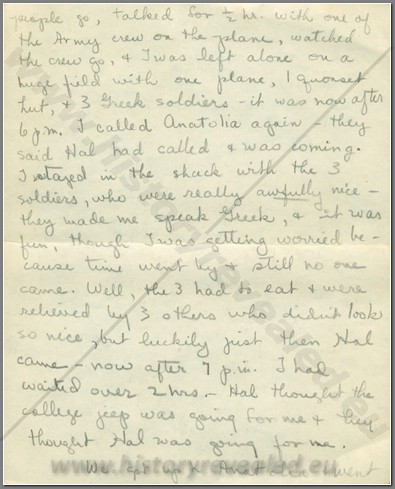 people go, talked for ½ hr. with one of
the Army crew on the plane, watched
the crew go, & I was left alone on a
huge field with one plane, 1 quonset
hut, & 3 Greek soldiers - it was now after
6 p.m. I called Anatolia again - they
said Hal had called & was coming.
I stayed in the shack with the 3
soldiers, who were really awfully nice -
they made me speak Greek, & it was
fun, though I was getting worried be-
cause time went by & still no one
came. Well, the 3 had to eat & were
relieved by 3 others who didn't look
so nice, but luckily just then Hal
came - now after 7 p.m. I had
waited over 2 hrs. - Hal thought the
college jeep was going for me & they
thought Hal was going for me.
We got up to Anatolia & went
www.historyrevealed.eu
www.historyrevealed.eu